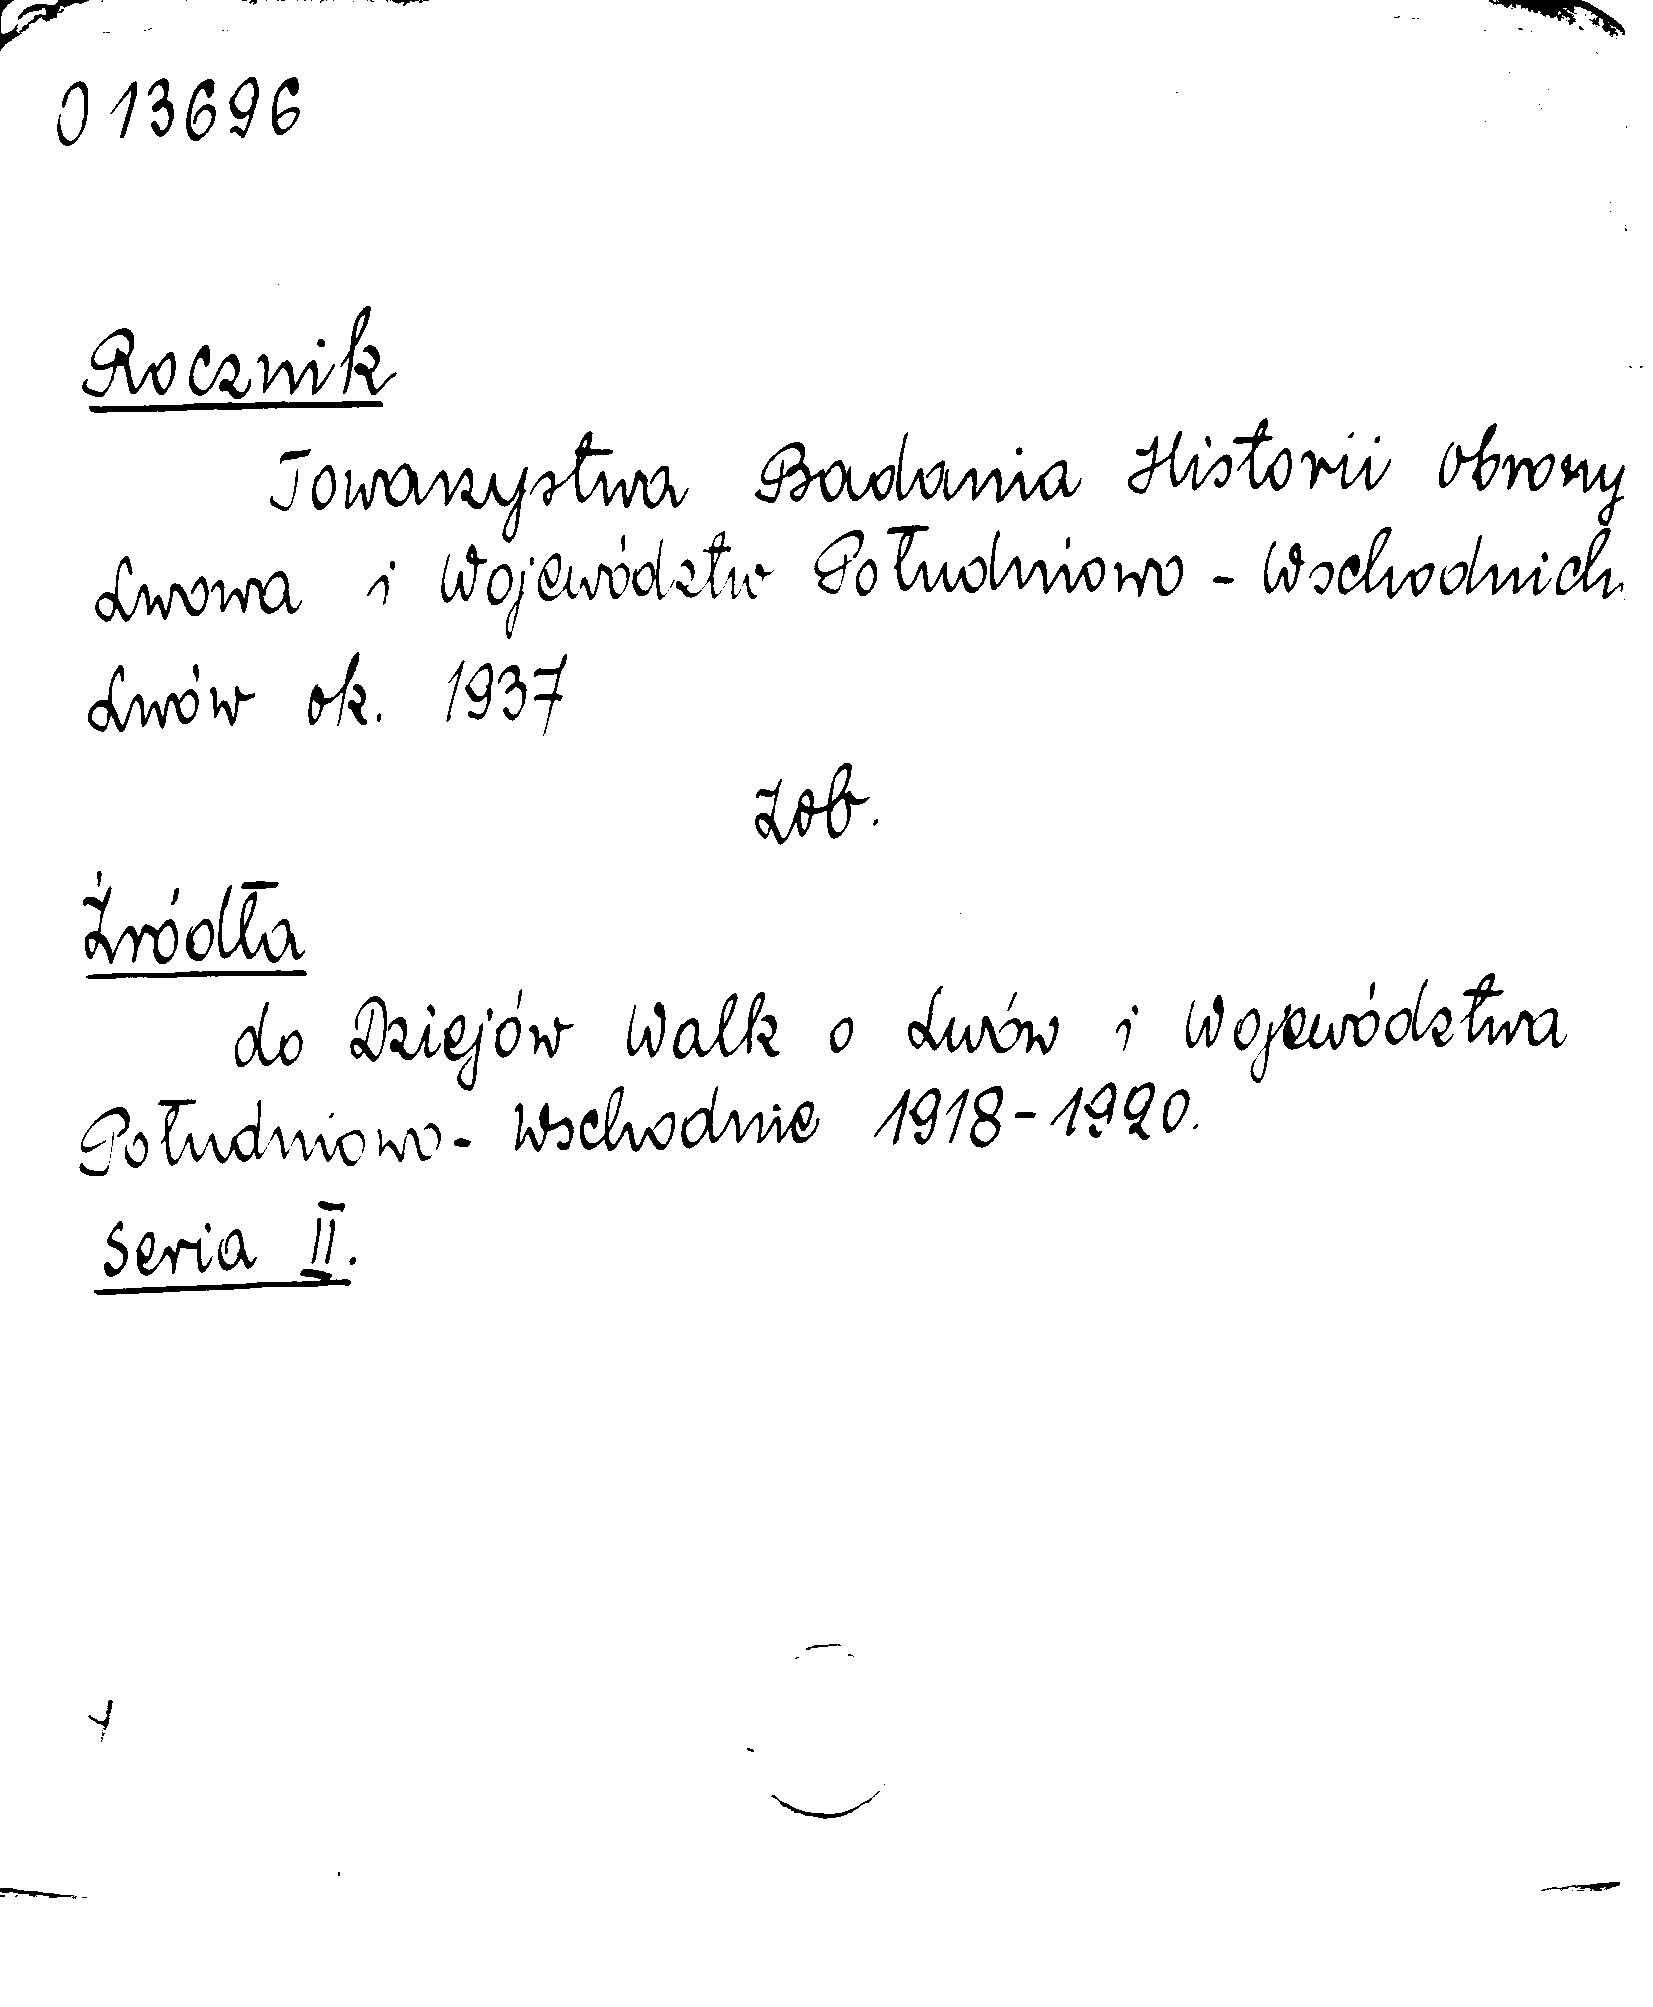 013696
Rocznik
Towarzystwa Badania Historii Obrony
Lwowa i Województw Południowo - Wschodnich
Lwów ok. 1937
Zob.
Źródła
do Dziejów Walk o Lwów i Województwa
Południowo - Wschodnie 1918-1920.
Seria II.